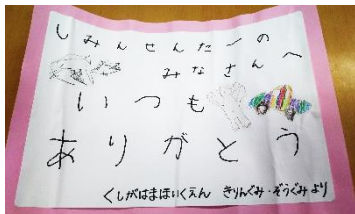 しみんせんたーの
みなさんへ
いつも
ありがとう
くしがはまほいくえん きりんぐみ・ぞうぐみより